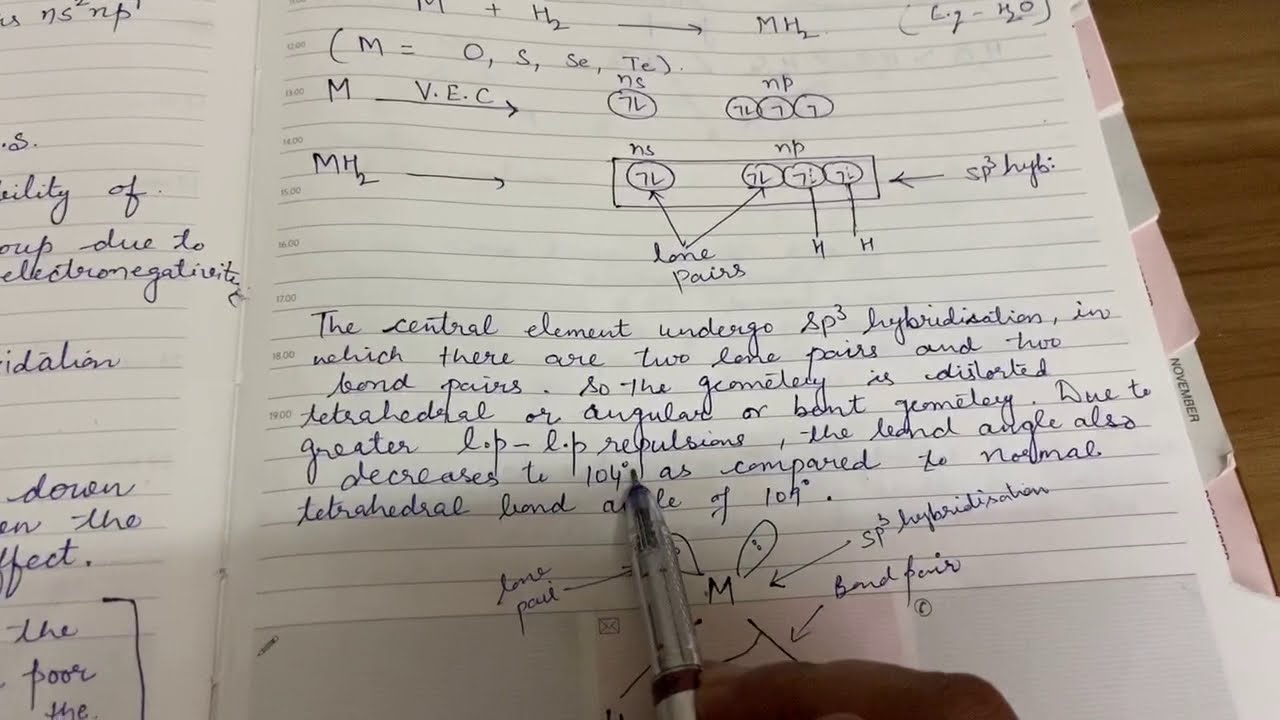 is ns²np¹
M + H₂ → MH₂ (E.g - H₂O)
12.00
(M = O, S, Se, Te).
13.00
M V.E.C → ns np
.s.
14.00
MH₂ → ns np ← sp³ hyb:
15.00
bility of
16.00
lone pairs H H
oup due to
electronegativity
17.00
The central element undergo sp³ hybridisation, in
18.00
which there are two lone pairs and two
idation
bond pairs. So the geometery is distorted
19.00
tetrahedral or angular or bent geometery. Due to
greater l.p - l.p repulsions, the bond angle also
decreases to 104° as compared to normal
down
tetrahedral bond a le of 109°.
en the
ffect.
lone pair M sp³ hybridisation
Bond pair
the
poor
the
NOVEMBER